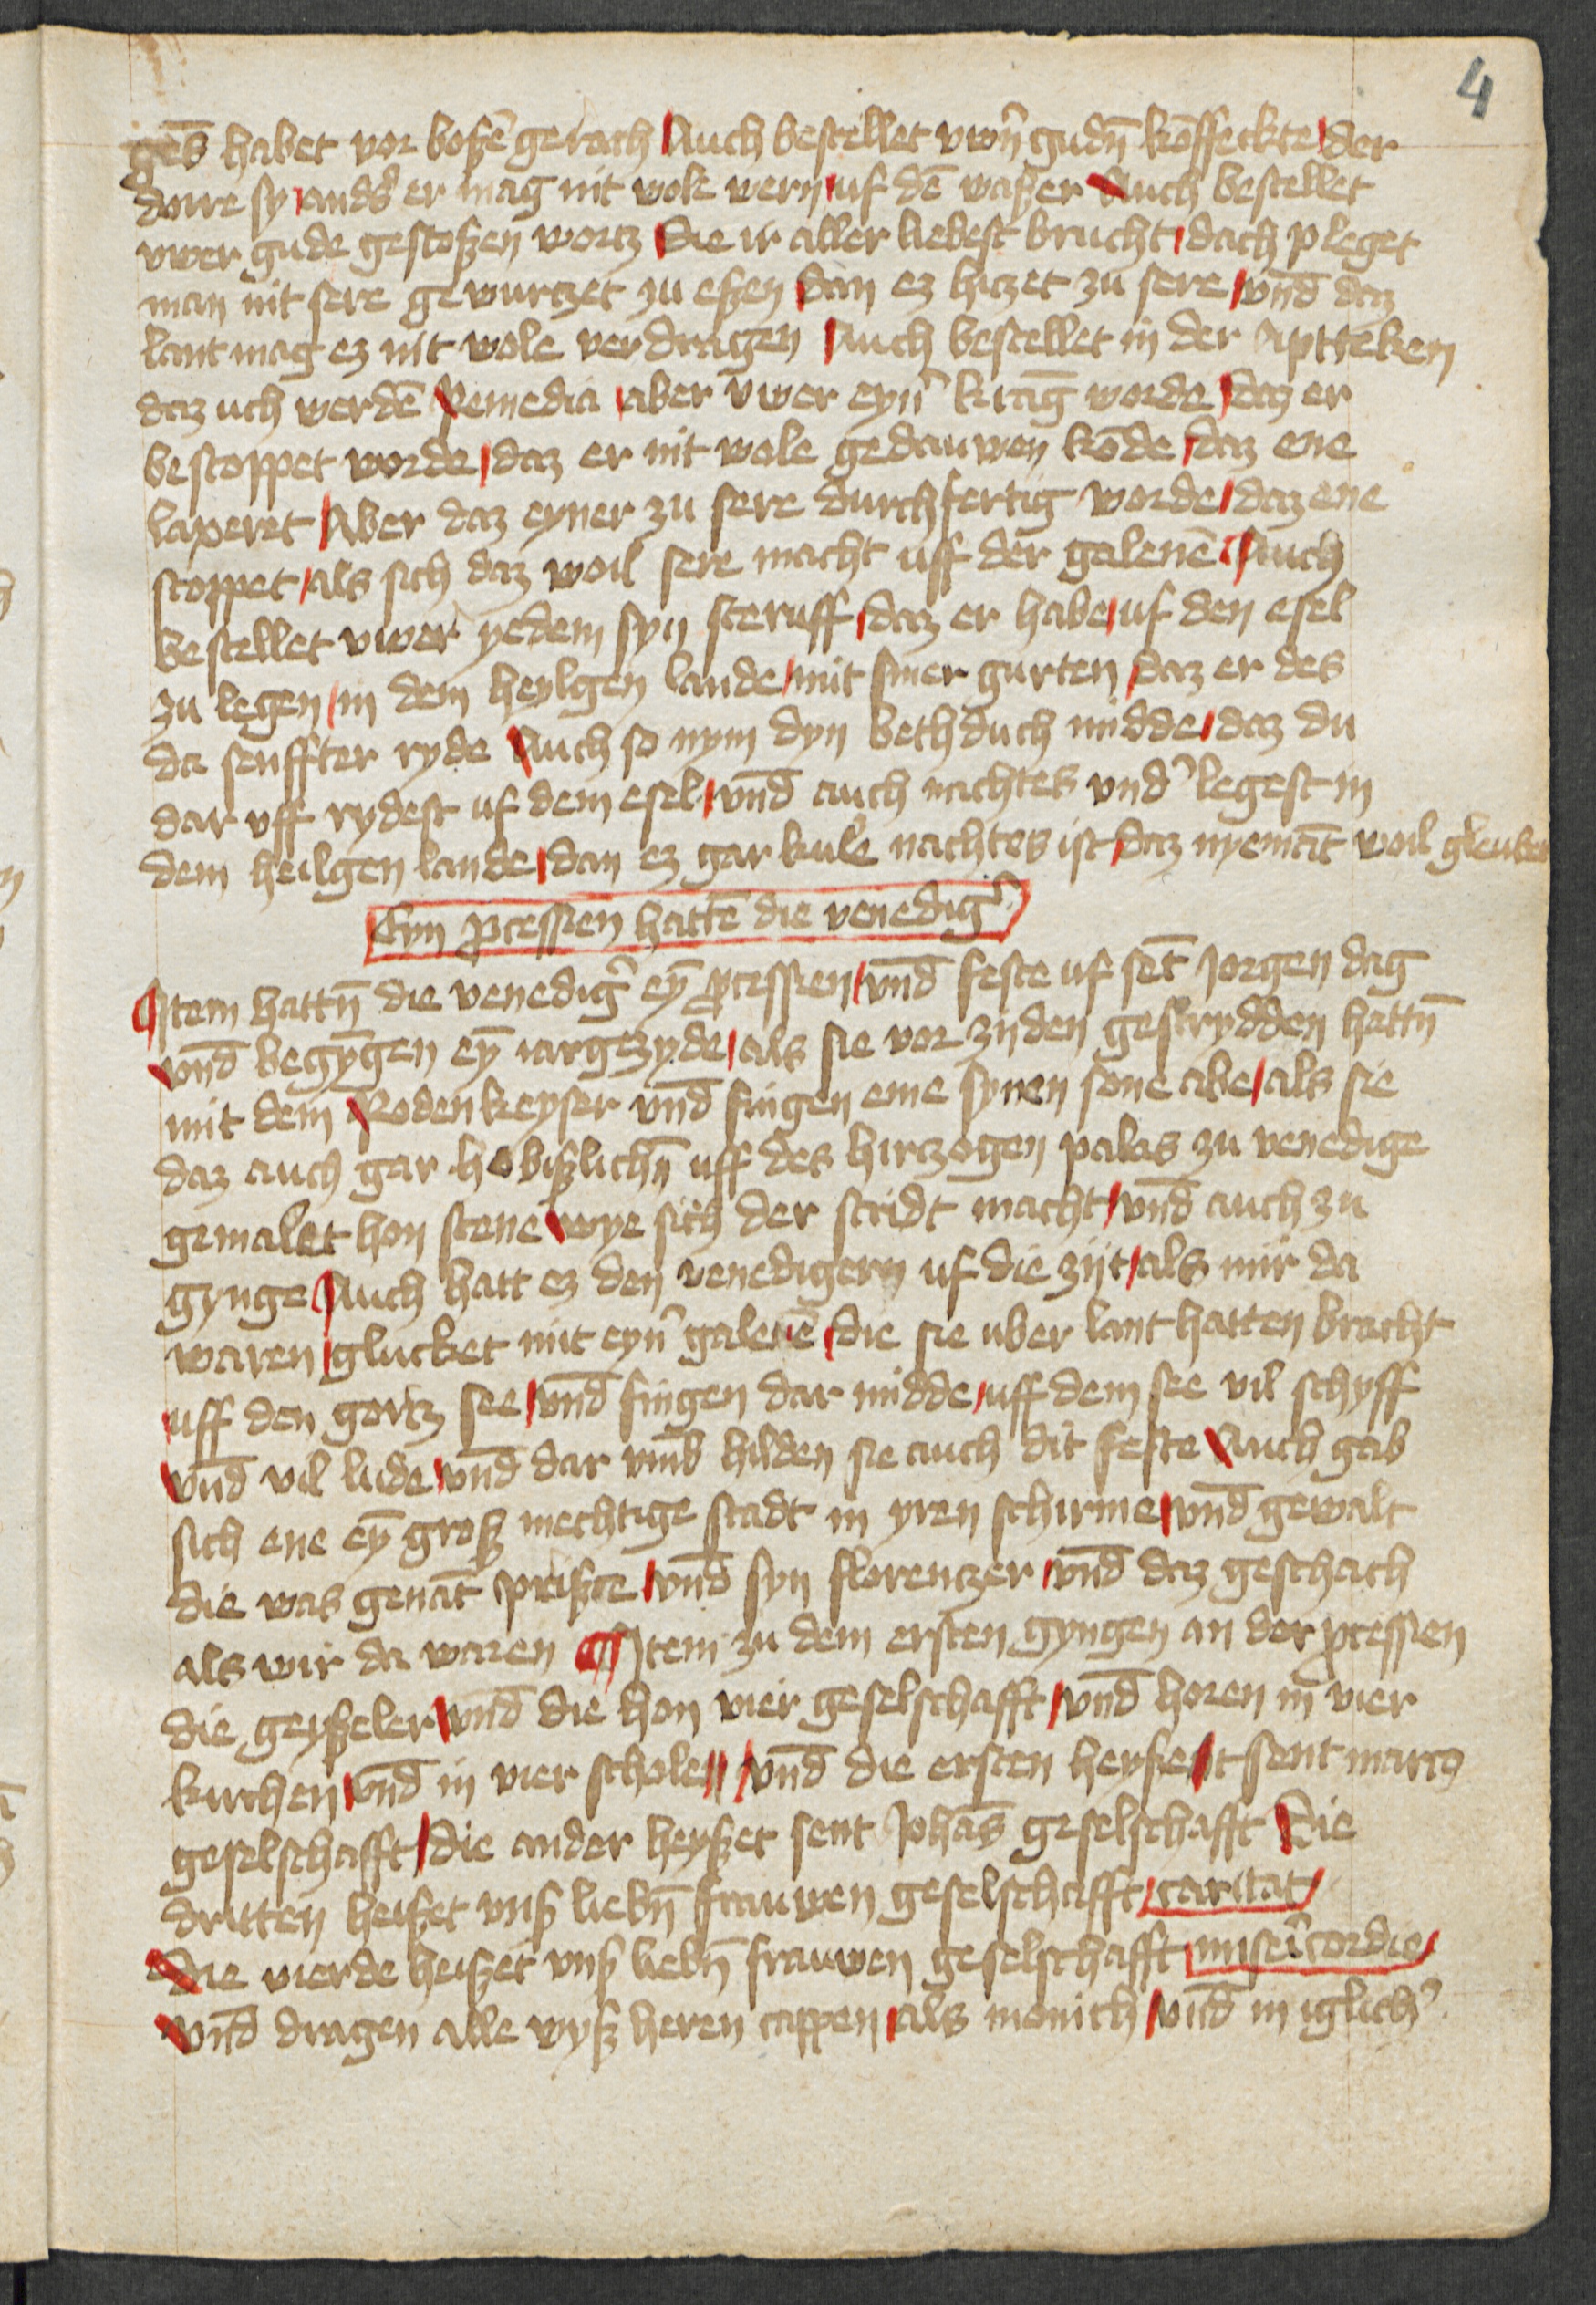 4
ges̄ habet vor boßē gerach Auch bestellet vwn̄ gudn̄ kōffeckte der
dorre sy anders er mag nit wole wern uf dē waßer Auch bestellet
vwer gude gestoßen wortz die ir aller liebest brucht dach pleget
man nit sere gewurtzet zu eßen dan ez hitzet zu sere vnd̄ daz
lant mag ez nit wole verdragen Auch bestellet in der apteken
daz uch werdē Remedia aber vwer eyn̄ krāg worde daz er
bestoppet worde daz er nit wole gedauwen kōde daz ene
laxeret Aber daz eyner zu sere durchfertig worde daz ene
stoppet als sich daz woil sere macht uff der galenē Auch
bestellet vwer yedem syn steruff daz er habe uf den esel
zu legen in dem heylgen lande mit siner gurten daz er des
da senffter ryde Auch so nym dyn bethduch midde daz du
dar vff rydest uf dem esel vnd̄ auch nachtes vnd̄ legest in
dem heilgen lande dan ez gar kule nachtes ist daz nyemāt woil gleuben
Eyn ꝓcessien hattē die venedig̉
Item hattn̄ die venedig̉ eyn̄ ꝓcessien vnd̄ feste uf sēt Jorgen dag
vnd̄ begyngen eyn̄ iargezyde als sie vor zyden gestrydden hattn̄
mit dem Roden keyser vnd̄ fingen eme synen sone abe als sie
daz auch gar hobißlichn̄ uff des hirtzogen palas zu venedige
gemalet hon stene wye sich der stridt macht vnd̄ auch zu
gynge Auch hatt ez den venedigern uf die zijt als mir da
waren glucket mit eyn̉ galenē die sie uber lant hatten bracht
uff den gortz see vnd̄ fingen dar midde uff dem see vil schyff
vnd̄ vil lude vnd̄ dar vmb hilden sie auch dit feste Auch gab
sich ene eyn̄ groß mechtige stadt in yren schirme vnd̄ gewalt
die was genāt prißte vnd̄ syn florentzer vnd̄ daz geschach
als wir da waren Item zu dem ersten gyngen an der ꝓcessien
die geyßeler vnd̄ die hon vier geselschafft vnd̄ horen in vier
kirchen vnd̄ in vier scholen vnd̄ die ersten heyßent sent marcß
geselschafft die ander heyßet sent Johās geselschafft Die
dritten heißet vnß liebn̄ frauwen geselschafft caritat
Die vierde heißet vnß liebn̄ frauwen geselschafft miserīcordie
vnd̄ dragen alle wyß heren cappen als monich vnd̄ in iglich̉